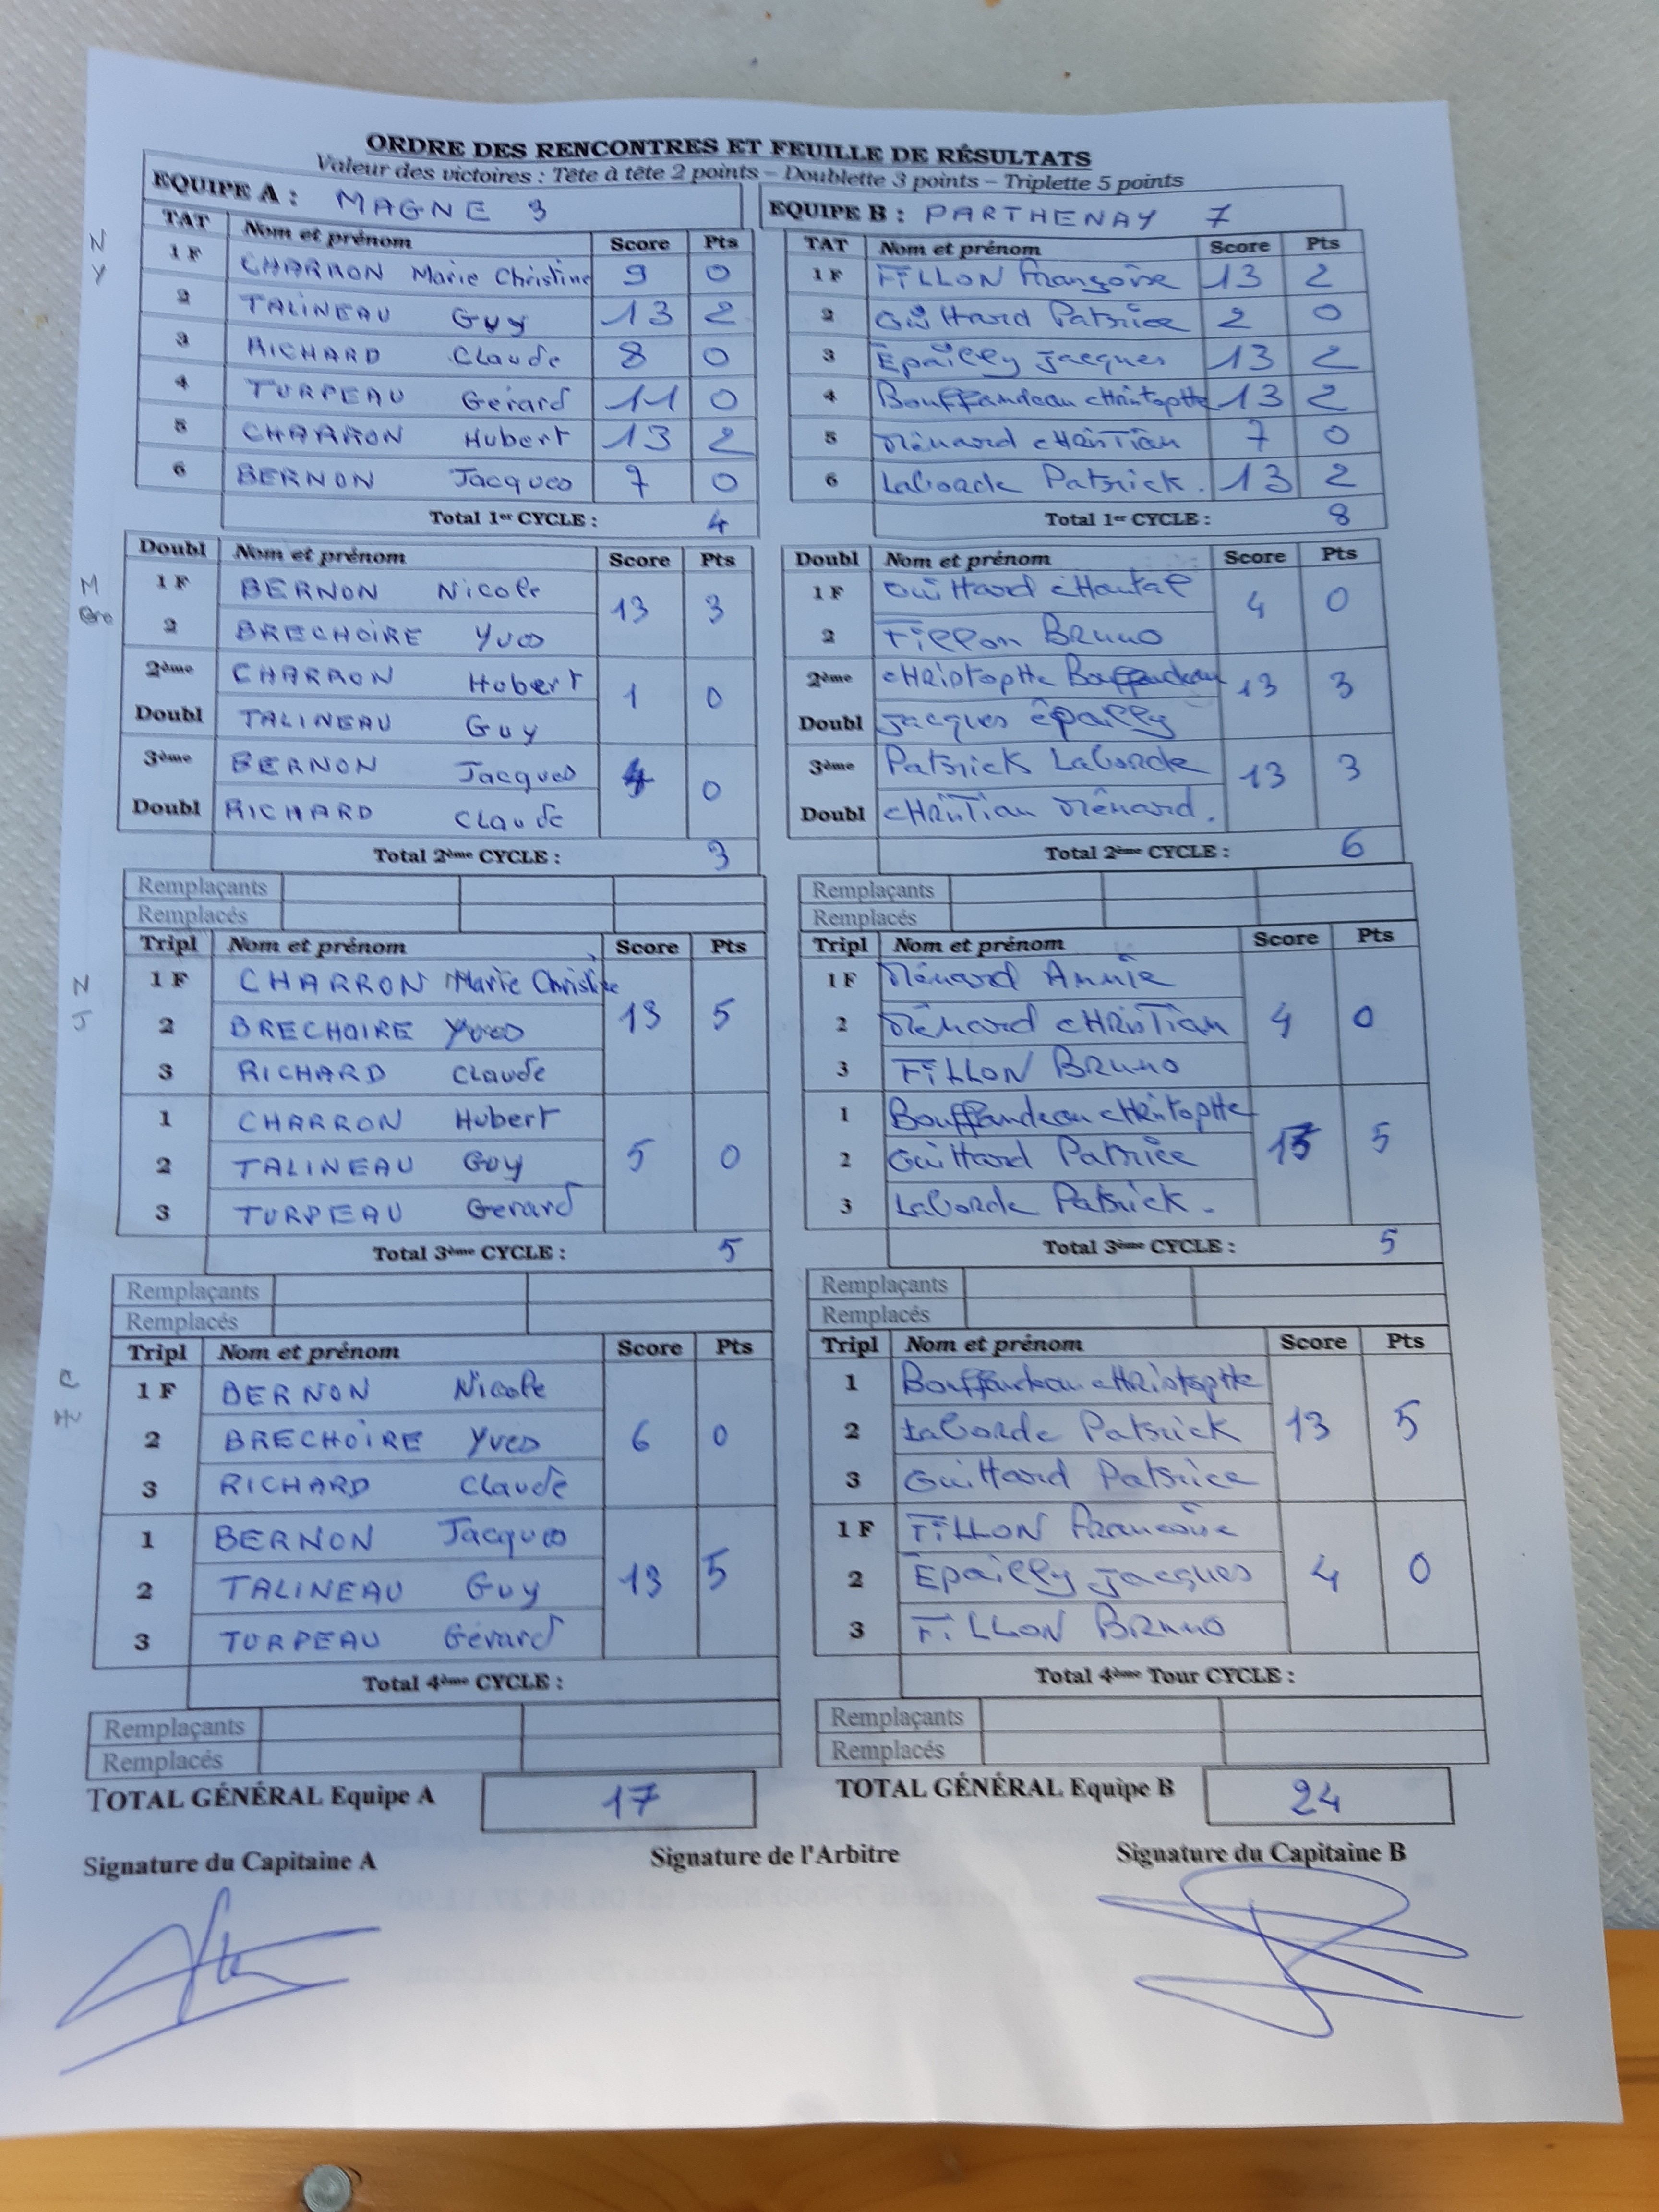 ORDRE DES RENCONTRES ET FEUILLE DE RÉSULTATS
Valeur des victoires : Tête à tête 2 points – Doublette 3 points – Triplette 5 points
EQUIPE A : MAGNE 3
TAT Nom et prénom Score Pts
1 F CHARRON Marie Christine 9 0
2 TALINEAU Guy 13 2
3 RICHARD Claude 8 0
4 TURPEAU Gérard 11 0
5 CHARRON Hubert 13 2
6 BERNON Jacques 7 0
Total 1er CYCLE : 4
EQUIPE B : PARTHENAY 7
TAT Nom et prénom Score Pts
1 F FILLON Françoise 13 2
2 Guittard Patrice 2 0
3 Epailly Jacques 13 2
4 Bouffandeau CHristopHe 13 2
5 Ménard CHRisTian 7 0
6 Laborde Patrick. 13 2
Total 1er CYCLE : 8
N
Y
Doubl Nom et prénom Score Pts
1 F BERNON Nicole 13 3
2 BRECHOIRE Yves
2ème CHARRON Hubert 1 0
Doubl TALINEAU Guy
3ème BERNON Jacques 4 0
Doubl RICHARD Claude
Total 2ème CYCLE : 3
Doubl Nom et prénom Score Pts
1 F Guittard CHantal 4 0
2 Fillon Bruno
2ème CHRistopHe Bouffandeau 13 3
Doubl Jacques épailly
3ème Patrick Laborde 13 3
Doubl CHRisTian Ménard.
Total 2ème CYCLE : 6
M
Remplaçants
Remplacés
Tripl Nom et prénom Score Pts
1 F CHARRON Marie Christine 13 5
2 BRECHOIRE Yves
3 RICHARD Claude
1 CHARRON Hubert 5 0
2 TALINEAU Guy
3 TURPEAU Gerard
Total 3ème CYCLE : 5
Remplaçants
Remplacés
Tripl Nom et prénom Score Pts
1 F Ménard Annie 4 0
2 Ménard CHRisTian
3 FiLLON BRuno
1 Bouffandeau CHristopHe 13 5
2 Guittard Patrice
3 Laborde Patrick.
Total 3ème CYCLE : 5
N
J
Remplaçants
Remplacés
Tripl Nom et prénom Score Pts
1 F BERNON Nicole 6 0
2 BRECHOIRE Yves
3 RICHARD Claude
1 BERNON Jacques 13 5
2 TALINEAU Guy
3 TURPEAU Gérard
Total 4ème CYCLE :
Remplaçants
Remplacés
Remplaçants
Remplacés
Tripl Nom et prénom Score Pts
1 Bouffandeau CHRistopHe 13 5
2 Laborde Patrick
3 Guittard Patrice
1 F FiLLON Francoise 4 0
2 Epailly Jacques
3 FiLLON BRuno
Total 4ème Tour CYCLE :
Remplaçants
Remplacés
C
TOTAL GÉNÉRAL Equipe A 17
TOTAL GÉNÉRAL Equipe B 24
Signature du Capitaine A
Signature de l'Arbitre
Signature du Capitaine B